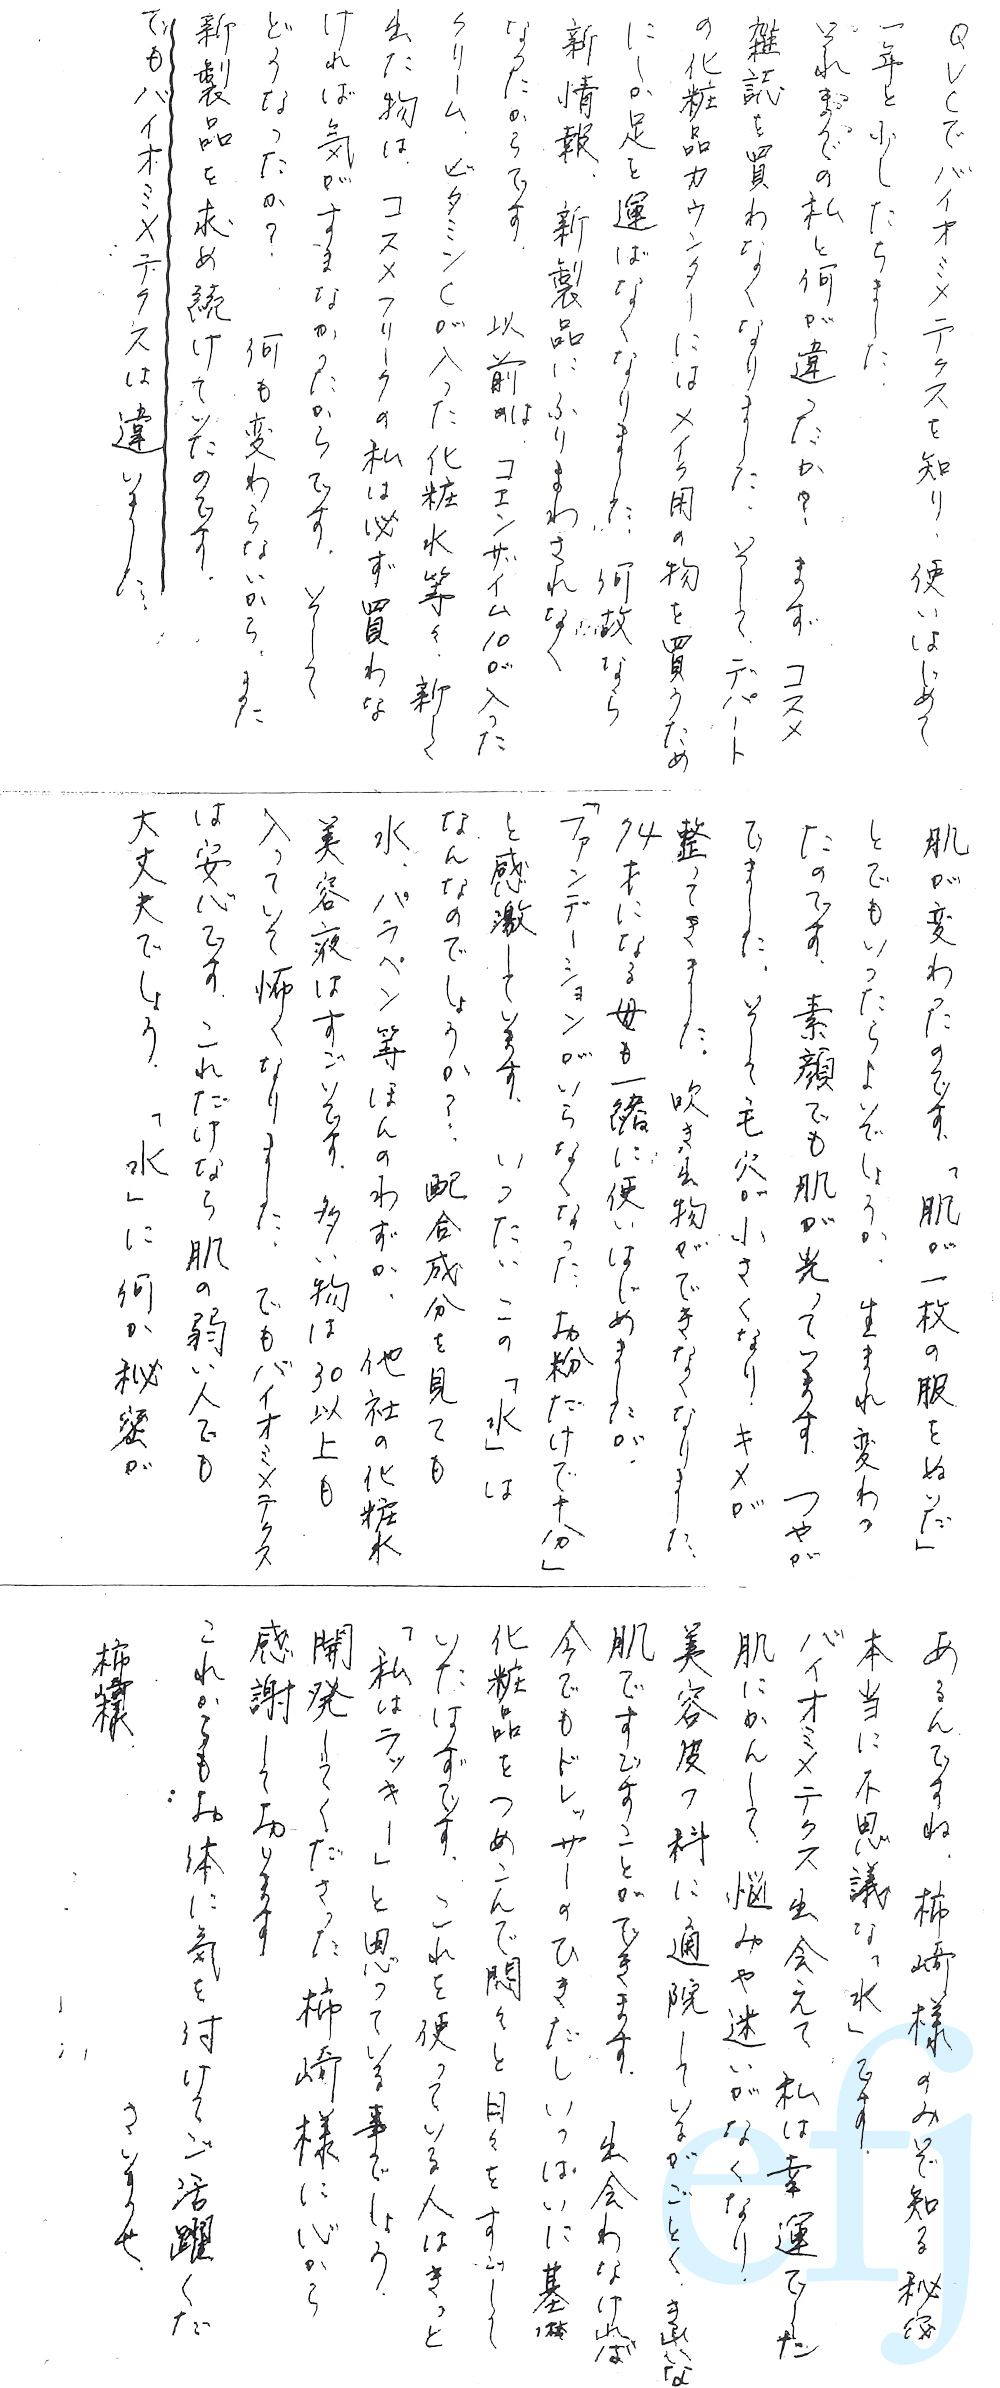 QVCでバイオミメテクスを知り、使いはじめて
一年と少したちました。
それまでの私と何が違ったか？ まず コスメ
雑誌を買わなくなりました。そして、デパート
の化粧品カウンターにはメイク用の物を買うため
にしか足を運ばなくなりました。何故なら
新情報、新製品にふりまわされなく
なったからです。 以前は、コエンザイム10が入った
クリーム、ビタミンCが入った化粧水等々、新しく
出た物は、コスメフリークの私は必ず買わな
ければ気がすまなかったからです。そして
どうなったか？ 何も変わらないから、また
新製品を求め続けていたのです。
でもバイオミメテクスは違いました。
肌が変わったのです。「肌が一枚の服をぬいだ」
とでもいったらよいでしょうか、生まれ変わっ
たのです。素顔でも肌が光っています。つやが
でました。そして毛穴が小さくなり、キメが
整ってきました。吹き出物ができなくなりました。
74才になる母も一緒に使いはじめましたが、
「ファンデーションがいらなくなった、お粉だけで十分」
と感激しています。いったいこの「水」は
なんなのでしょうか？ 配合成分を見ても
水、パラベン等ほんのわずか、他社の化粧水
美容液はすごいです。多い物は30以上も
入っていて怖くなりました。でもバイオミメテクス
は安心です。これだけなら肌の弱い人でも
大丈夫でしょう。「水」に何か秘密が
あるんですね。柿崎様のみぞ知る秘密
本当に不思議な「水」です。
バイオミメテクス出会えて私は幸運でした
肌にかんして、悩みや迷いがなくなり、
美容皮フ科に通院しているがごとく、きれいな
肌ですごすことができます。 出会わなければ
今でもドレッサーのひきだしいっぱいに基礎
化粧品をつめこんで悶々と日々をすごして
いたはずです。これを使っている人はきっと
「私はラッキー」と思っている事でしょう。
開発してくださった柿崎様に心から
感謝しております
これからもお体に気を付けてご活躍くだ
さいませ。
柿様
efj